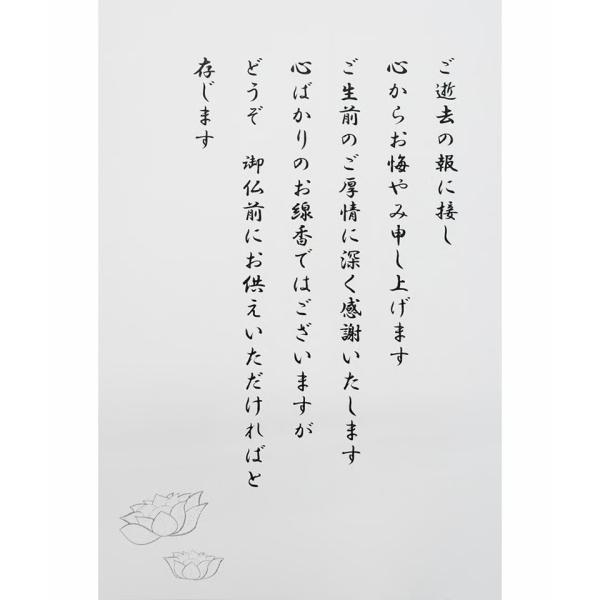 ご逝去の報に接し
心からお悔やみ申し上げます
ご生前のご厚情に深く感謝いたします
心ばかりのお線香ではございますが
どうぞ　御仏前にお供えいただければと
存じます